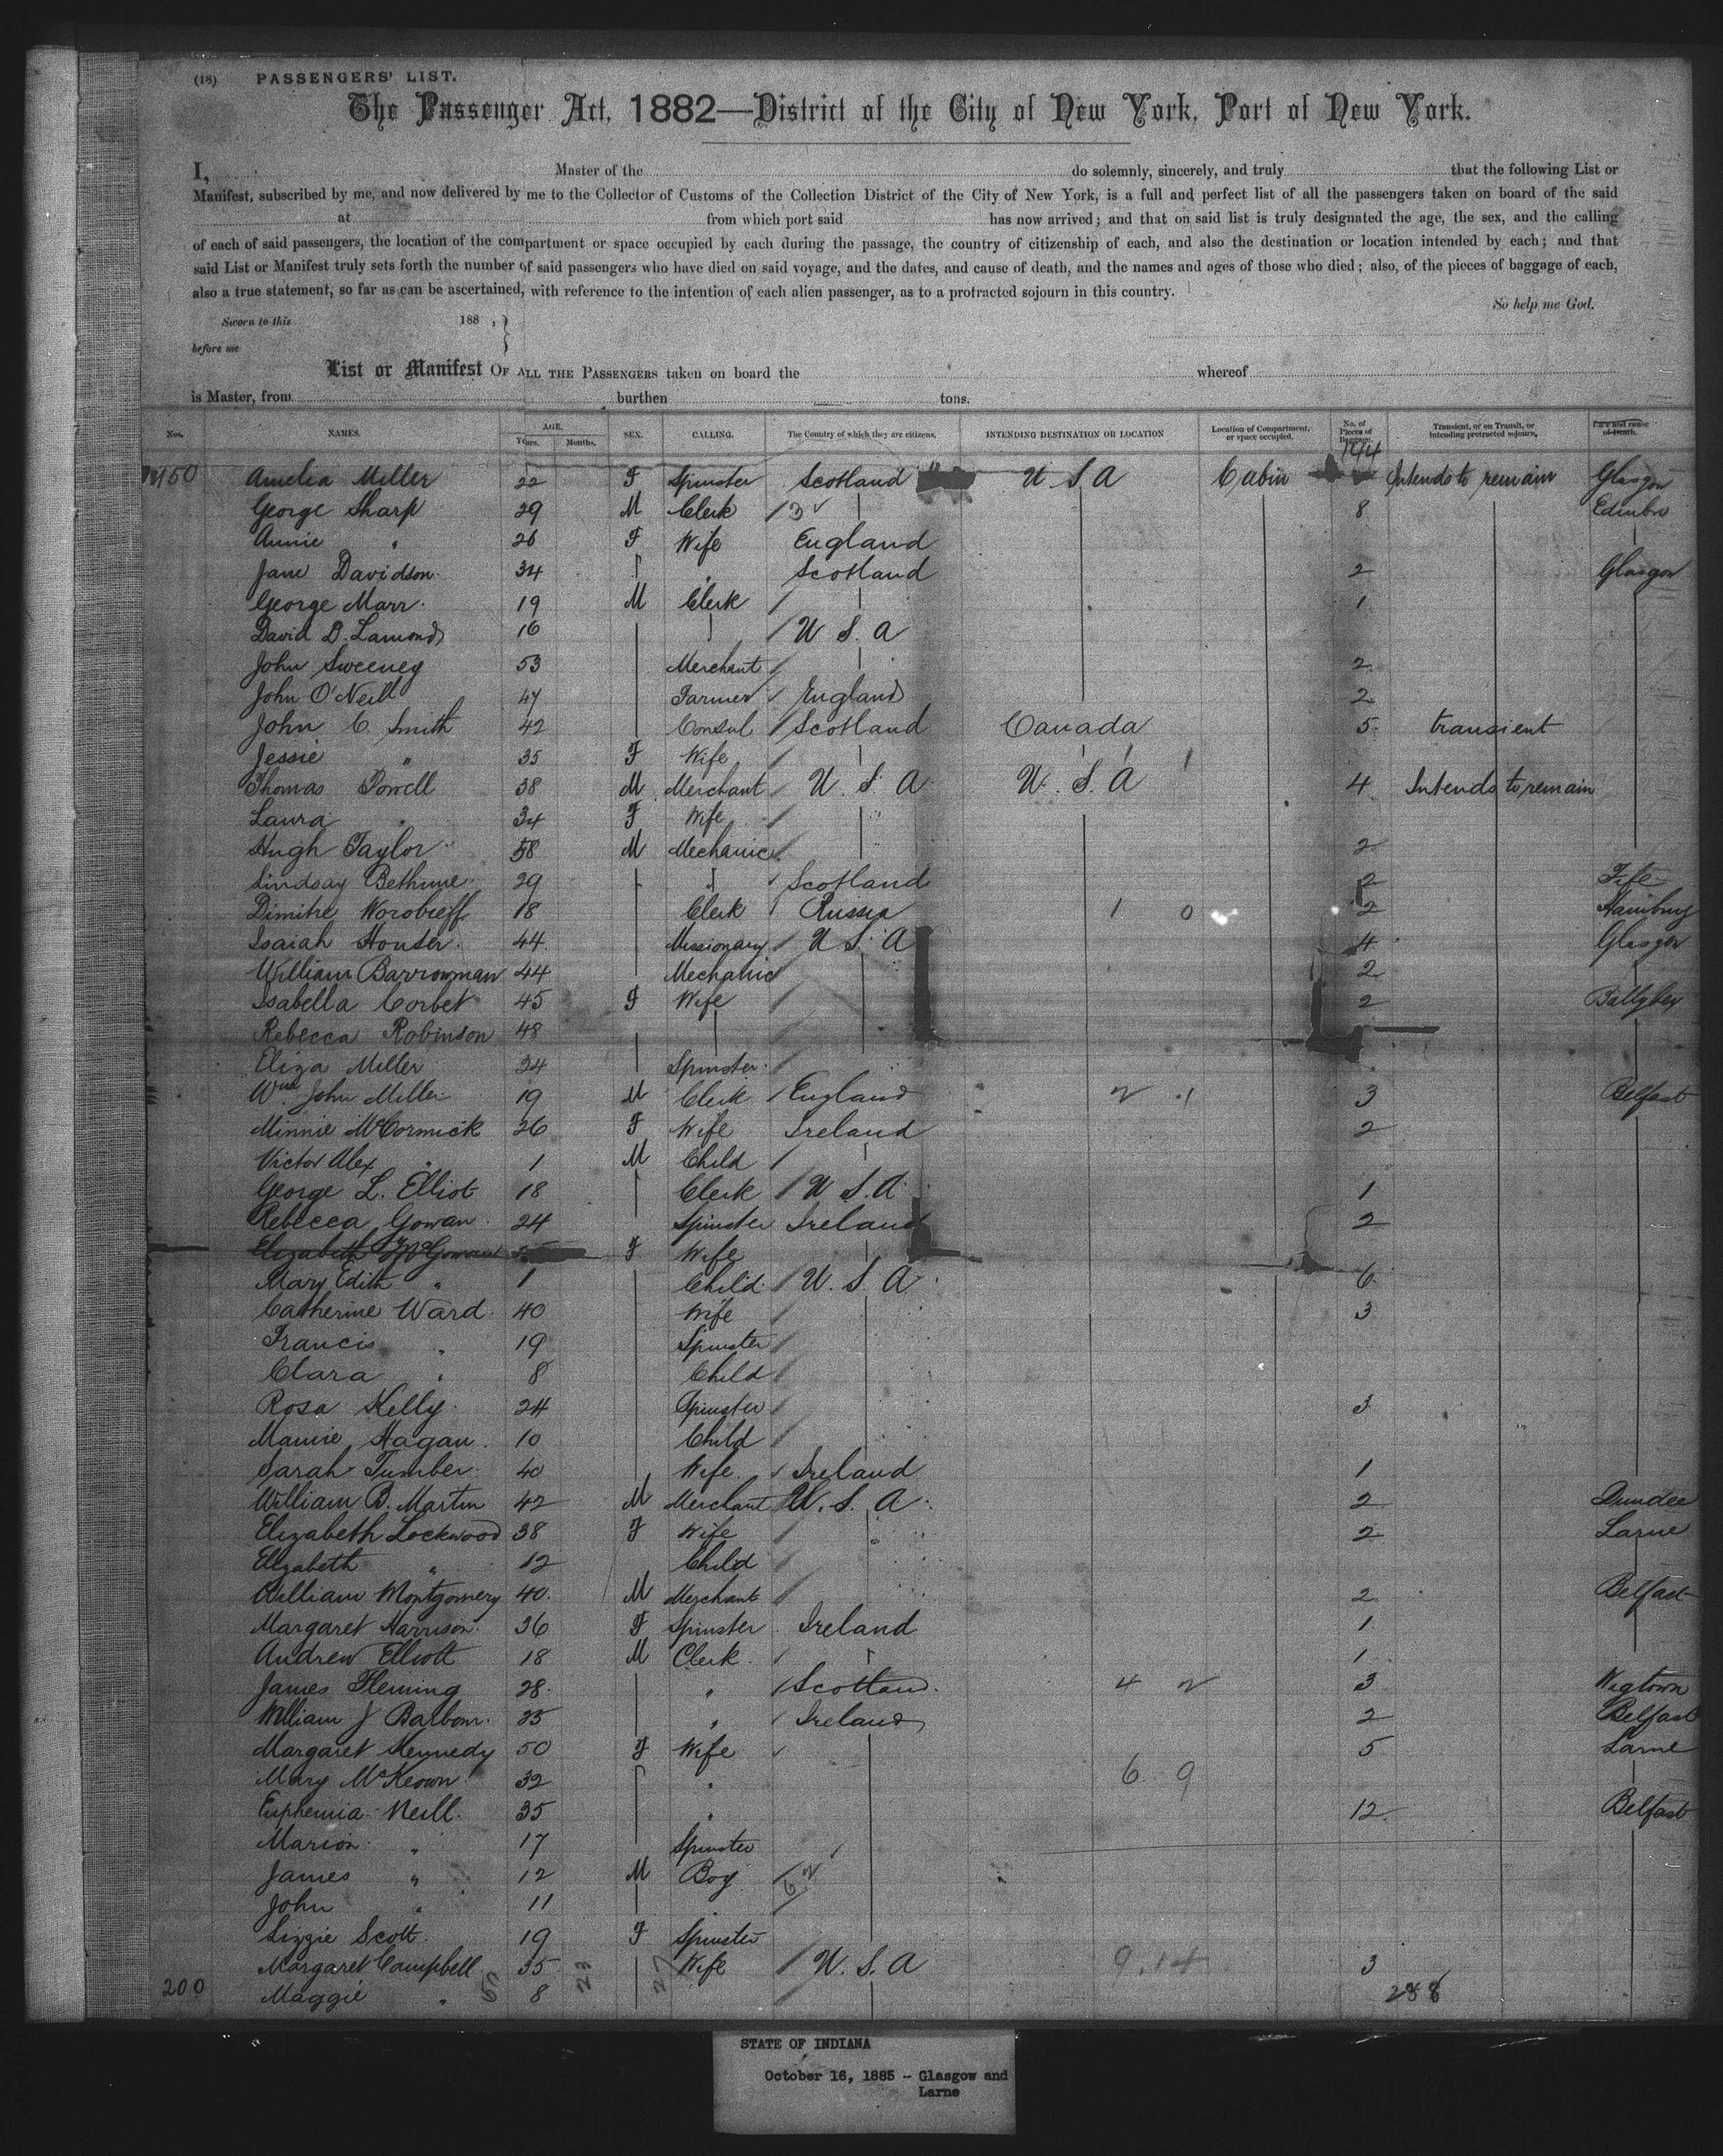 (13) PASSENGERS' LIST.
The Passenger Act, 1882—District of the City of New York, Port of New York.
I, Master of the do solemnly, sincerely, and truly that the following List or
Manifest, subscribed by me, and now delivered by me to the Collector of Customs of the Collection District of the City of New York, is a full and perfect list of all the passengers taken on board of the said
at from which port said has now arrived; and that on said list is truly designated the age, the sex, and the calling
of each of said passengers, the location of the compartment or space occupied by each during the passage, the country of citizenship of each, and also the destination or location intended by each; and that
said List or Manifest truly sets forth the number of said passengers who have died on said voyage, and the dates, and cause of death, and the names and ages of those who died; also, of the pieces of baggage of each,
also a true statement, so far as can be ascertained, with reference to the intention of each alien passenger, as to a protracted sojourn in this country.
So help me God.
Sworn to this 188 ,
before me
List or Manifest OF ALL THE PASSENGERS taken on board the whereof
is Master, from burthen tons.
Nos. NAMES. AGE. Years. Months. SEX. CALLING. The Country of which they are citizens. INTENDING DESTINATION OR LOCATION Location of Compartment, or space occupied. No. of Pieces of Baggage. Transient, or on Transit, or intending protracted sojourn. Date and cause of Death.
144
150 Amelia Miller 22 F Spinster Scotland " U S A Cabin Intends to remain Glasgow
George Sharp 29 M Clerk 8 Edinbro
Annie " 26 F Wife England
Jane Davidson 34 " Scotland 2 Glasgow
George Marr 19 M Clerk 1
David D. Lamond 16 U S. A
John Sweeney 53 Merchant 2
John O'Neill 47 Farmer England 2
John C Smith 42 Consul Scotland Canada 5 transient
Jessie " 35 F Wife
Thomas Powell 38 M Merchant U. S. A U. S. A 4 Intends to remain
Laura " 34 F Wife
Hugh Taylor 58 M Mechanic 2
Lindsay Bethune 29 " Scotland 2 Fife
Dimitre Worobieff 18 Clerk Russia 1 0 2 Hamburg
Isaiah Houser 44 Missionary U S. A 4 Glasgow
William Barrowman 44 Mechanic 2
Isabella Corbet 45 F Wife 2 Ballybey
Rebecca Robinson 48
Eliza Miller 24 Spinster
Wm John Miller 19 M Clerk England 2 1 3 Belfast
Minnie McCormick 26 F Wife Ireland 2
Victor Alex " 1 M Child
George L. Elliot 18 Clerk U S. A 1
Rebecca Gowan 24 Spinster Ireland 2
Elizabeth McGowan F Wife
Mary Edith " 1 Child U. S. A 6
Catherine Ward 40 Wife 3
Francis " 19 Spinster
Clara " 8 Child
Rosa Kelly 24 Spinster 3
Mamie Hagan 10 Child
Sarah Tumber 40 Wife Ireland 1
William B. Martin 42 M Merchant U. S. A 2 Dundee
Elizabeth Lockwood 38 F Wife 2 Larne
Elizabeth " 12 Child
William Montgomery 40 M Merchant 2 Belfast
Margaret Harrison 36 F Spinster Ireland 1
Andrew Elliott 18 M Clerk 1
James Fleming 28 " Scotland 4 2 3 Wigtown
William J Barbour " Ireland 2 Belfast
Margaret Kennedy 50 F Wife 5 Larne
Mary McKeown 32 " 6 9
Euphemia Neill 35 " 12 Belfast
Marion " 17 Spinster
James " 12 M Boy
John " 11
Lizzie Scott 19 F Spinster
Margaret Campbell 35 Wife U. S. A 9.14 3
200 Maggie " 8 23 27 238
STATE OF INDIANA
October 16, 1885 - Glasgow and
Larne